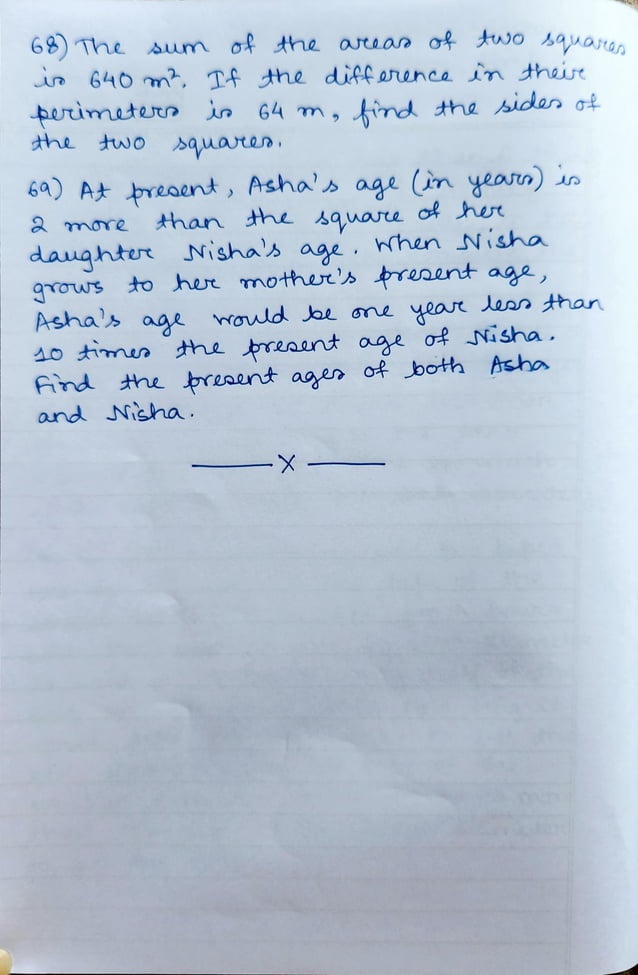 68) The sum of the areas of two squares
is 640 m². If the difference in their
perimeters is 64 m, find the sides of
the two squares.
69) At present, Asha's age (in years) is
2 more than the square of her
daughter Nisha's age. When Nisha
grows to her mother's present age,
Asha's age would be one year less than
10 times the present age of Nisha.
Find the present ages of both Asha
and Nisha.
—— X ——